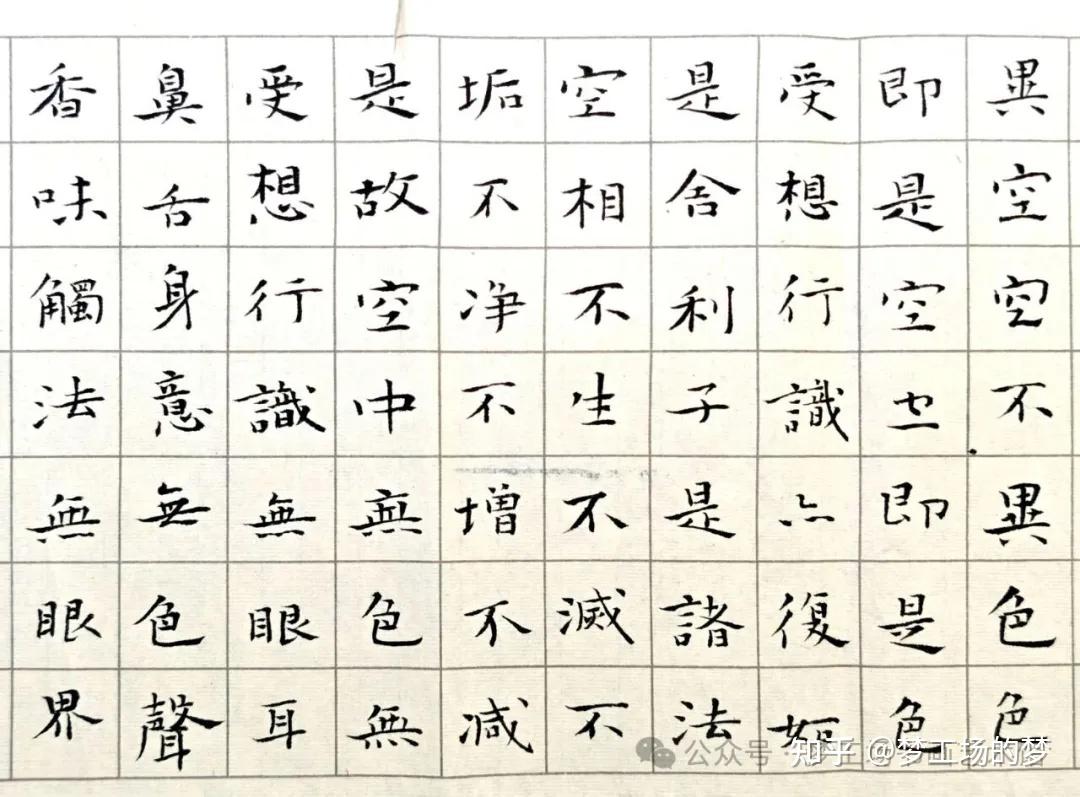 異空空不異色色
即是空即是色
受想行識亦復如
是舍利子是諸法
空相不生不滅不
垢不净不增不减
是故空中無色無
受想行識無眼耳
鼻舌身意無色聲
香味觸法無眼界
公众号
知乎 @梦工场的梦